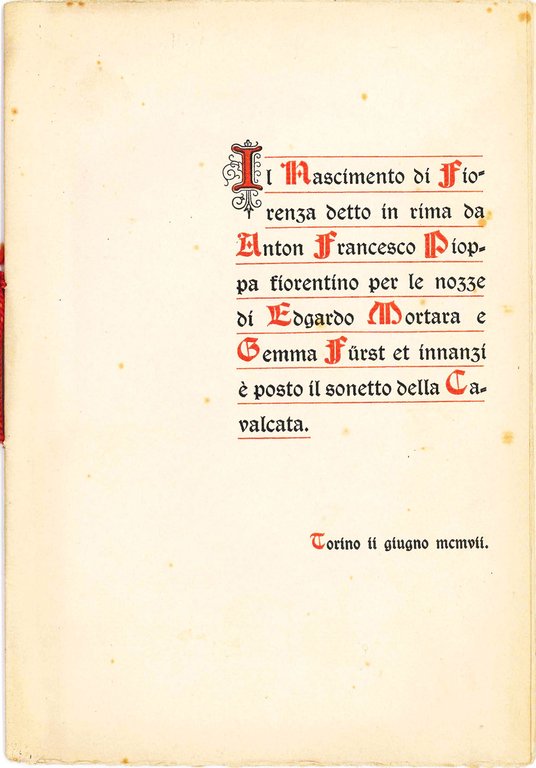 Il Nascimento di Fio-
renza detto in rima da
Anton Francesco Piop-
pa fiorentino per le nozze
di Edgardo Mortara e
Gemma Fürst et innanzi
è posto il sonetto della Ca-
valcata.
Torino ii giugno mcmvii.